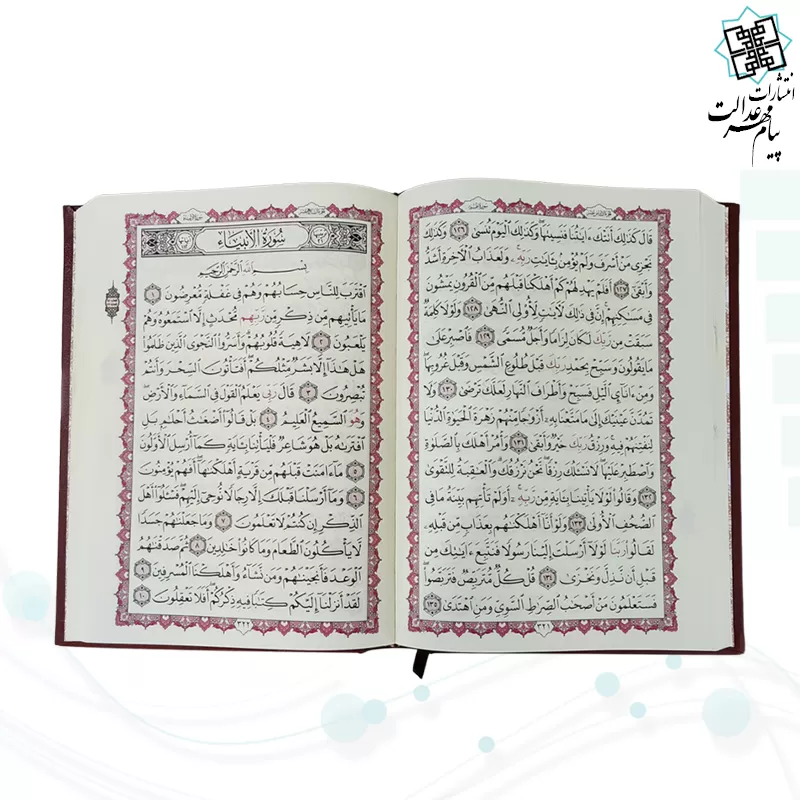 انتشارات
پیام مهر عدالت
قَالَ كَذَٰلِكَ أَتَتْكَ ءَايَٰتُنَا فَنَسِيتَهَا ۖ وَكَذَٰلِكَ ٱلْيَوْمَ تُنسَىٰ ١٢٦ وَكَذَٰلِكَ
نَجْزِى مَنْ أَسْرَفَ وَلَمْ يُؤْمِنۢ بِـَٔايَٰتِ رَبِّهِۦ ۚ وَلَعَذَابُ ٱلْءَاخِرَةِ أَشَدُّ
وَأَبْقَىٰٓ ١٢٧ أَفَلَمْ يَهْدِ لَهُمْ كَمْ أَهْلَكْنَا قَبْلَهُم مِّنَ ٱلْقُرُونِ يَمْشُونَ
فِى مَسَٰكِنِهِمْ ۗ إِنَّ فِى ذَٰلِكَ لَءَايَٰتٍ لِّأُو۟لِى ٱلنُّهَىٰ ١٢٨ وَلَوْلَا كَلِمَةٌ
سَبَقَتْ مِن رَّبِّكَ لَكَانَ لِزَامًا وَأَجَلٌ مُّسَمًّى ١٢٩ فَٱصْبِرْ عَلَىٰ
مَا يَقُولُونَ وَسَبِّحْ بِحَمْدِ رَبِّكَ قَبْلَ طُلُوعِ ٱلشَّمْسِ وَقَبْلَ غُرُوبِهَا ۖ
وَمِنْ ءَانَآئِ ٱلَّيْلِ فَسَبِّحْ وَأَطْرَافَ ٱلنَّهَارِ لَعَلَّكَ تَرْضَىٰ ١٣٠ وَلَا
تَمُدَّنَّ عَيْنَيْكَ إِلَىٰ مَا مَتَّعْنَا بِهِۦٓ أَزْوَٰجًا مِّنْهُمْ زَهْرَةَ ٱلْحَيَوٰةِ ٱلدُّنْيَا
لِنَفْتِنَهُمْ فِيهِ ۚ وَرِزْقُ رَبِّكَ خَيْرٌ وَأَبْقَىٰ ١٣١ وَأْمُرْ أَهْلَكَ بِٱلصَّلَوٰةِ
وَٱصْطَبِرْ عَلَيْهَا ۖ لَا نَسْـَٔلُكَ رِزْقًا ۖ نَّحْنُ نَرْزُقُكَ ۗ وَٱلْعَٰقِبَةُ لِلتَّقْوَىٰ
١٣٢ وَقَالُوا۟ لَوْلَا يَأْتِينَا بِـَٔايَةٍ مِّن رَّبِّهِۦٓ ۚ أَوَلَمْ تَأْتِهِم بَيِّنَةُ مَا فِى
ٱلصُّحُفِ ٱلْأُولَىٰ ١٣٣ وَلَوْ أَنَّآ أَهْلَكْنَٰهُم بِعَذَابٍ مِّن قَبْلِهِۦ
لَقَالُوا۟ رَبَّنَا لَوْلَآ أَرْسَلْتَ إِلَيْنَا رَسُولًا فَنَتَّبِعَ ءَايَٰتِكَ مِن
قَبْلِ أَن نَّذِلَّ وَنَخْزَىٰ ١٣٤ قُلْ كُلٌّ مُّتَرَبِّصٌ فَتَرَبَّصُوا۟ ۖ
فَسَتَعْلَمُونَ مَنْ أَصْحَٰبُ ٱلصِّرَٰطِ ٱلسَّوِىِّ وَمَنِ ٱهْتَدَىٰ ١٣٥
٣٢١
سُورَةُ الأَنْبِيَاءِ
بِسْمِ ٱللَّهِ ٱلرَّحْمَٰنِ ٱلرَّحِيمِ
ٱقْتَرَبَ لِلنَّاسِ حِسَابُهُمْ وَهُمْ فِى غَفْلَةٍ مُّعْرِضُونَ ١
مَا يَأْتِيهِم مِّن ذِكْرٍ مِّن رَّبِّهِم مُّحْدَثٍ إِلَّا ٱسْتَمَعُوهُ وَهُمْ
يَلْعَبُونَ ٢ لَاهِيَةً قُلُوبُهُمْ ۗ وَأَسَرُّوا۟ ٱلنَّجْوَى ٱلَّذِينَ ظَلَمُوا۟
هَلْ هَٰذَآ إِلَّا بَشَرٌ مِّثْلُكُمْ ۖ أَفَتَأْتُونَ ٱلسِّحْرَ وَأَنتُمْ
تُبْصِرُونَ ٣ قَالَ رَبِّى يَعْلَمُ ٱلْقَوْلَ فِى ٱلسَّمَآءِ وَٱلْأَرْضِ ۖ
وَهُوَ ٱلسَّمِيعُ ٱلْعَلِيمُ ٤ بَلْ قَالُوٓا۟ أَضْغَٰثُ أَحْلَٰمٍۭ بَلِ
ٱفْتَرَىٰهُ بَلْ هُوَ شَاعِرٌ فَلْيَأْتِنَا بِـَٔايَةٍ كَمَآ أُرْسِلَ ٱلْأَوَّلُونَ
٥ مَآ ءَامَنَتْ قَبْلَهُم مِّن قَرْيَةٍ أَهْلَكْنَٰهَآ ۖ أَفَهُمْ يُؤْمِنُونَ
٦ وَمَآ أَرْسَلْنَا قَبْلَكَ إِلَّا رِجَالًا نُّوحِىٓ إِلَيْهِمْ ۖ فَسْـَٔلُوٓا۟ أَهْلَ
ٱلذِّكْرِ إِن كُنتُمْ لَا تَعْلَمُونَ ٧ وَمَا جَعَلْنَٰهُمْ جَسَدًا
لَّا يَأْكُلُونَ ٱلطَّعَامَ وَمَا كَانُوا۟ خَٰلِدِينَ ٨ ثُمَّ صَدَقْنَٰهُمُ
ٱلْوَعْدَ فَأَنجَيْنَٰهُمْ وَمَن نَّشَآءُ وَأَهْلَكْنَا ٱلْمُسْرِفِينَ ٩
لَقَدْ أَنزَلْنَآ إِلَيْكُمْ كِتَٰبًا فِيهِ ذِكْرُكُمْ ۖ أَفَلَا تَعْقِلُونَ ١٠
٣٢٢